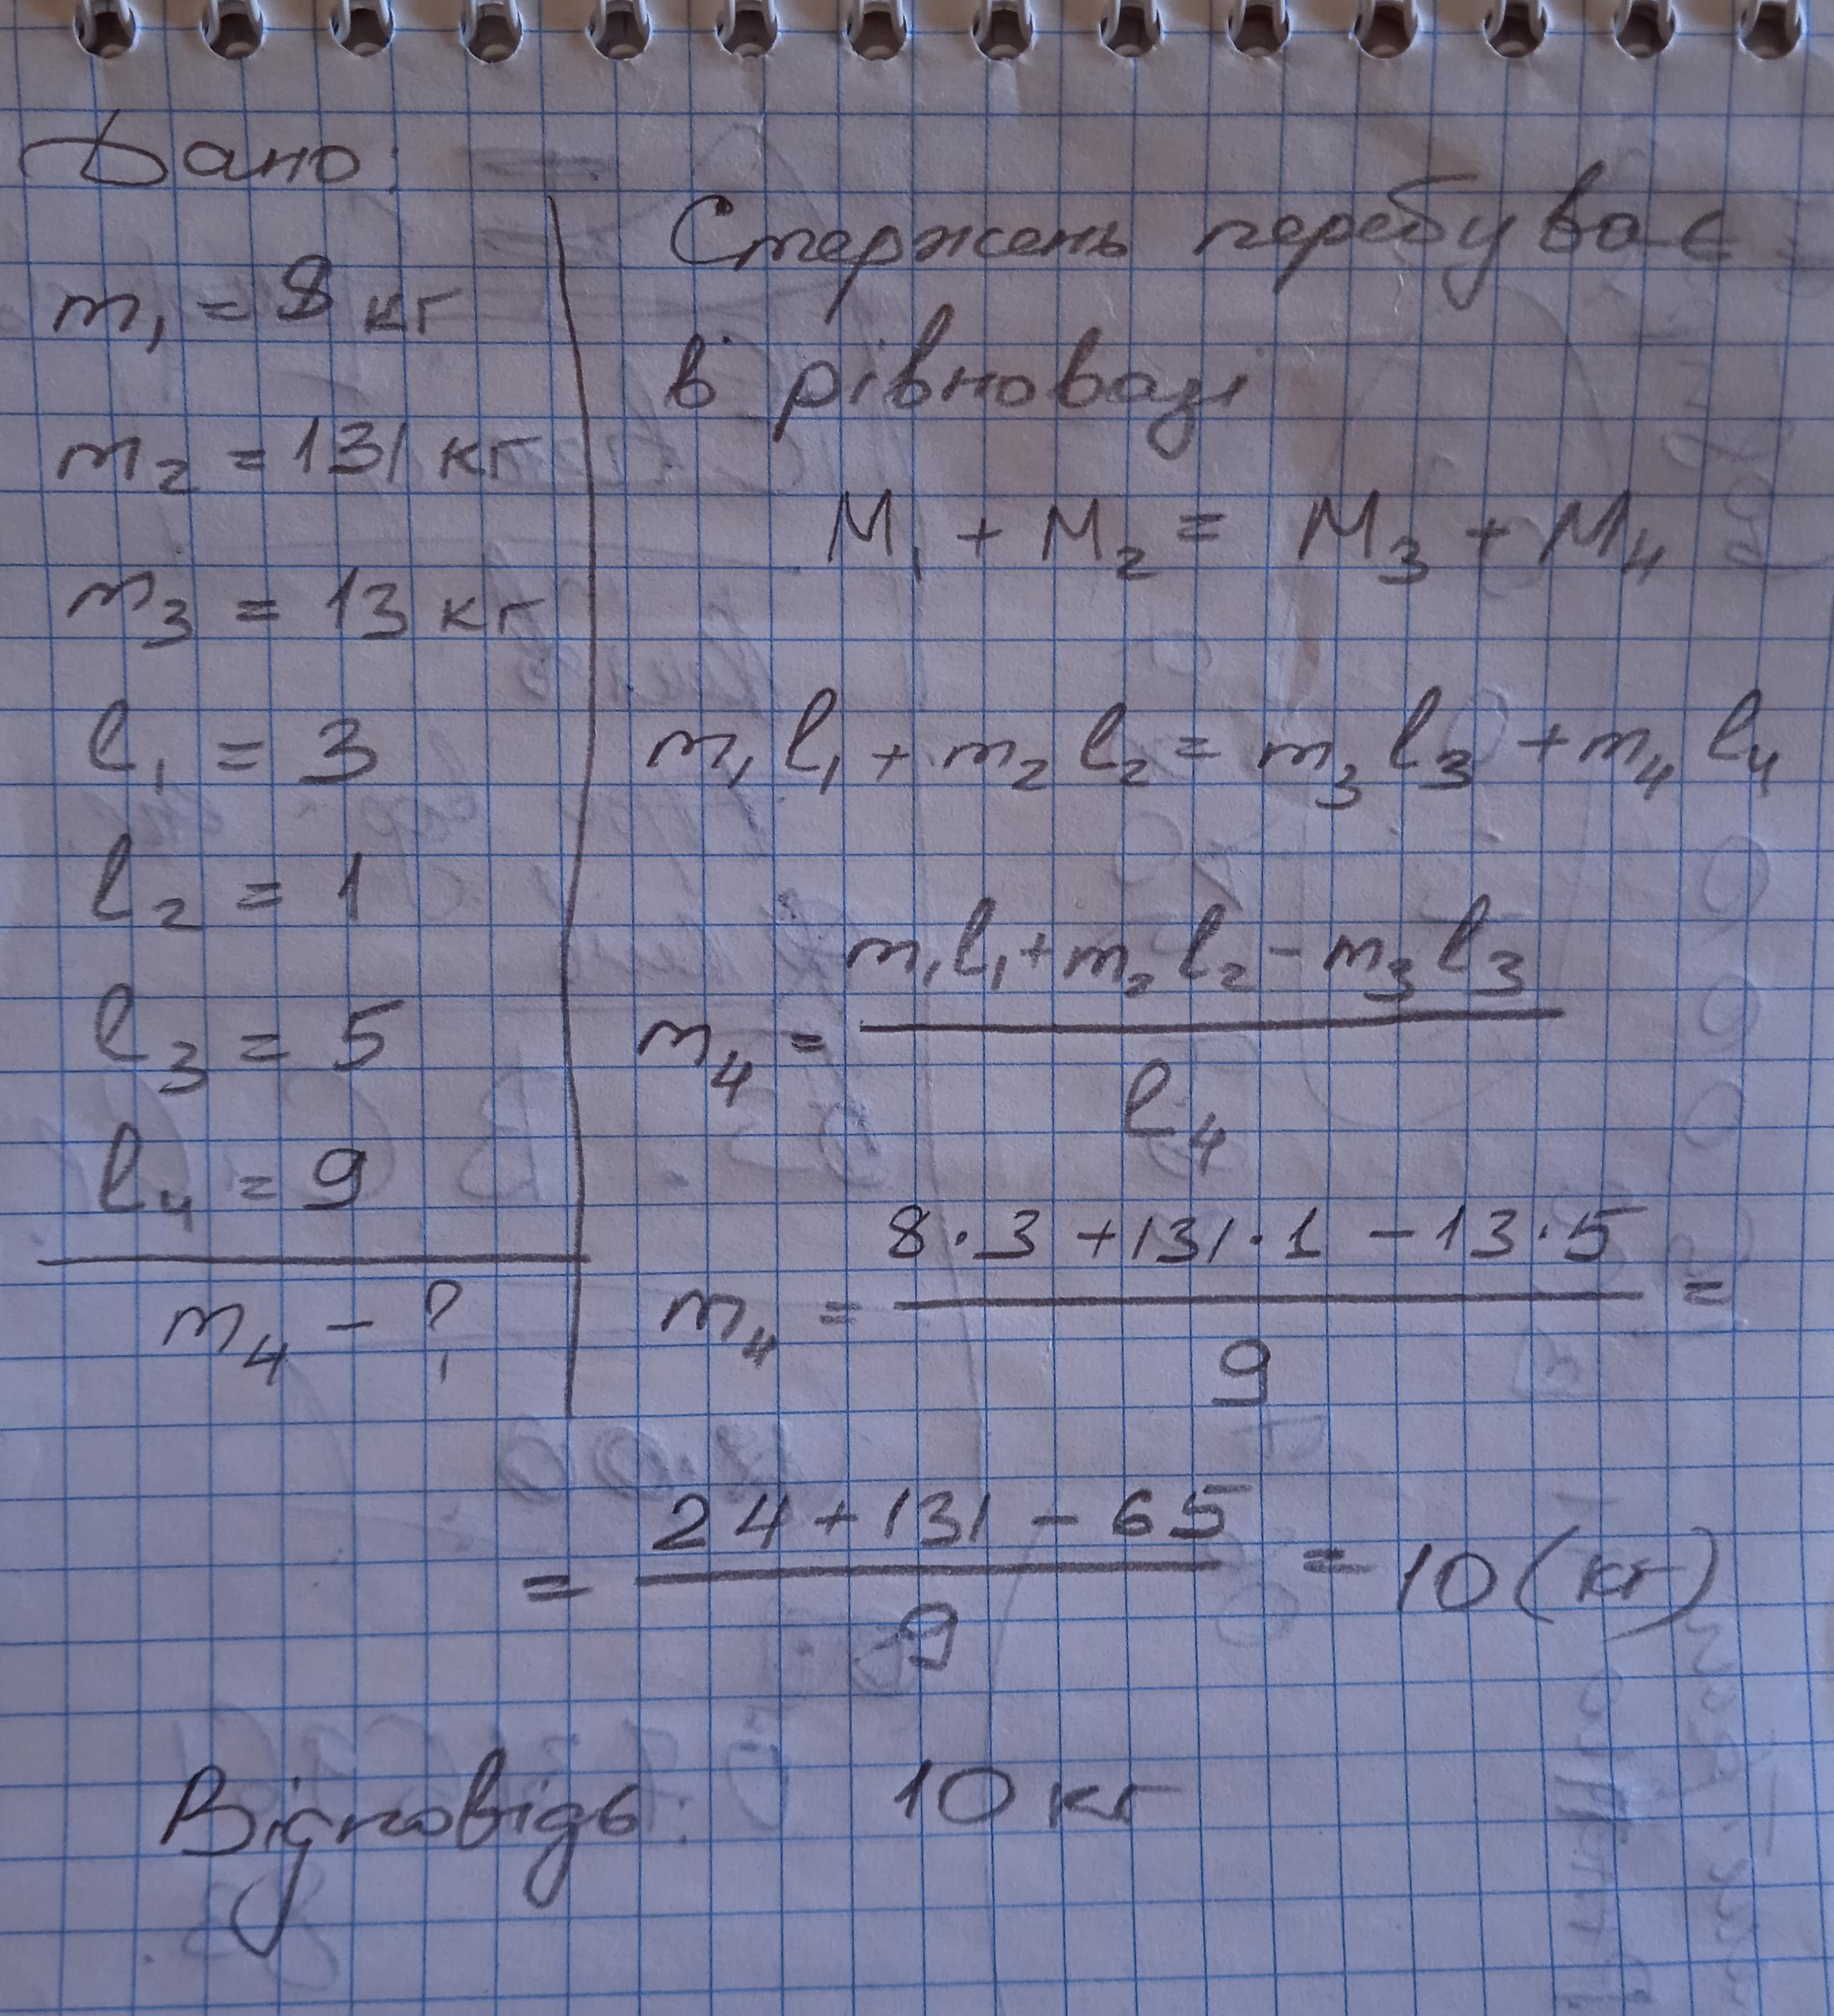 Дано:
m₁ = 8 кг
m₂ = 131 кг
m₃ = 13 кг
l₁ = 3
l₂ = 1
l₃ = 5
l₄ = 9
m₄ - ?
Стержень перебуває
в рівновазі
M₁ + M₂ = M₃ + M₄
m₁l₁ + m₂l₂ = m₃l₃ + m₄l₄
m₄ = (m₁l₁ + m₂l₂ - m₃l₃) / l₄
m₄ = (8·3 + 131·1 - 13·5) / 9 =
= (24 + 131 - 65) / 9 = 10 (кг)
Відповідь: 10 кг